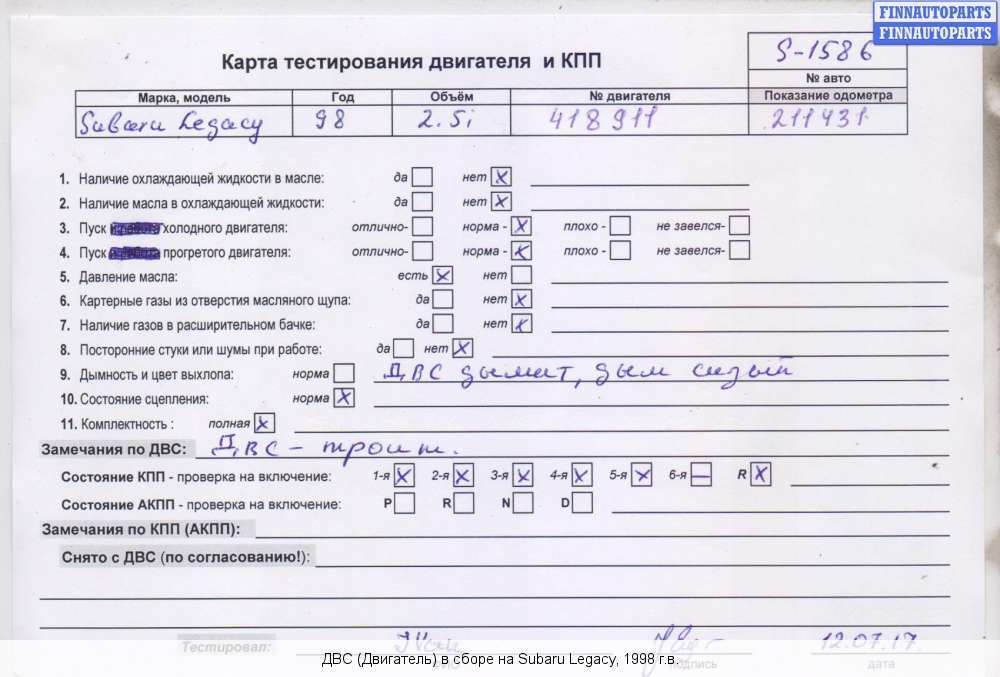 FINNAUTOPARTS
FINNAUTOPARTS
S-1586
№ авто
Карта тестирования двигателя и КПП
Марка, модель Год Объём № двигателя Показание одометра
Subaru Legacy 98 2.5i 418911 211431
1. Наличие охлаждающей жидкости в масле: да нет X
2. Наличие масла в охлаждающей жидкости: да нет X
3. Пуск холодного двигателя: отлично- норма - X плохо - не завелся-
4. Пуск прогретого двигателя: отлично- норма - X плохо - не завелся-
5. Давление масла: есть X нет
6. Картерные газы из отверстия масляного щупа: да нет X
7. Наличие газов в расширительном бачке: да нет X
8. Посторонние стуки или шумы при работе: да нет X
9. Дымность и цвет выхлопа: норма ДВС дымит, дым сизый
10. Состояние сцепления: норма X
11. Комплектность : полная X
Замечания по ДВС: ДВС – троит.
Состояние КПП - проверка на включение: 1-я X 2-я X 3-я X 4-я X 5-я X 6-я — R X
Состояние АКПП - проверка на включение: P R N D
Замечания по КПП (АКПП):
Снято с ДВС (по согласованию!):
Тестировал: 12.07.17
ДВС (Двигатель) в сборе на Subaru Legacy, 1998 г.в.
подпись дата